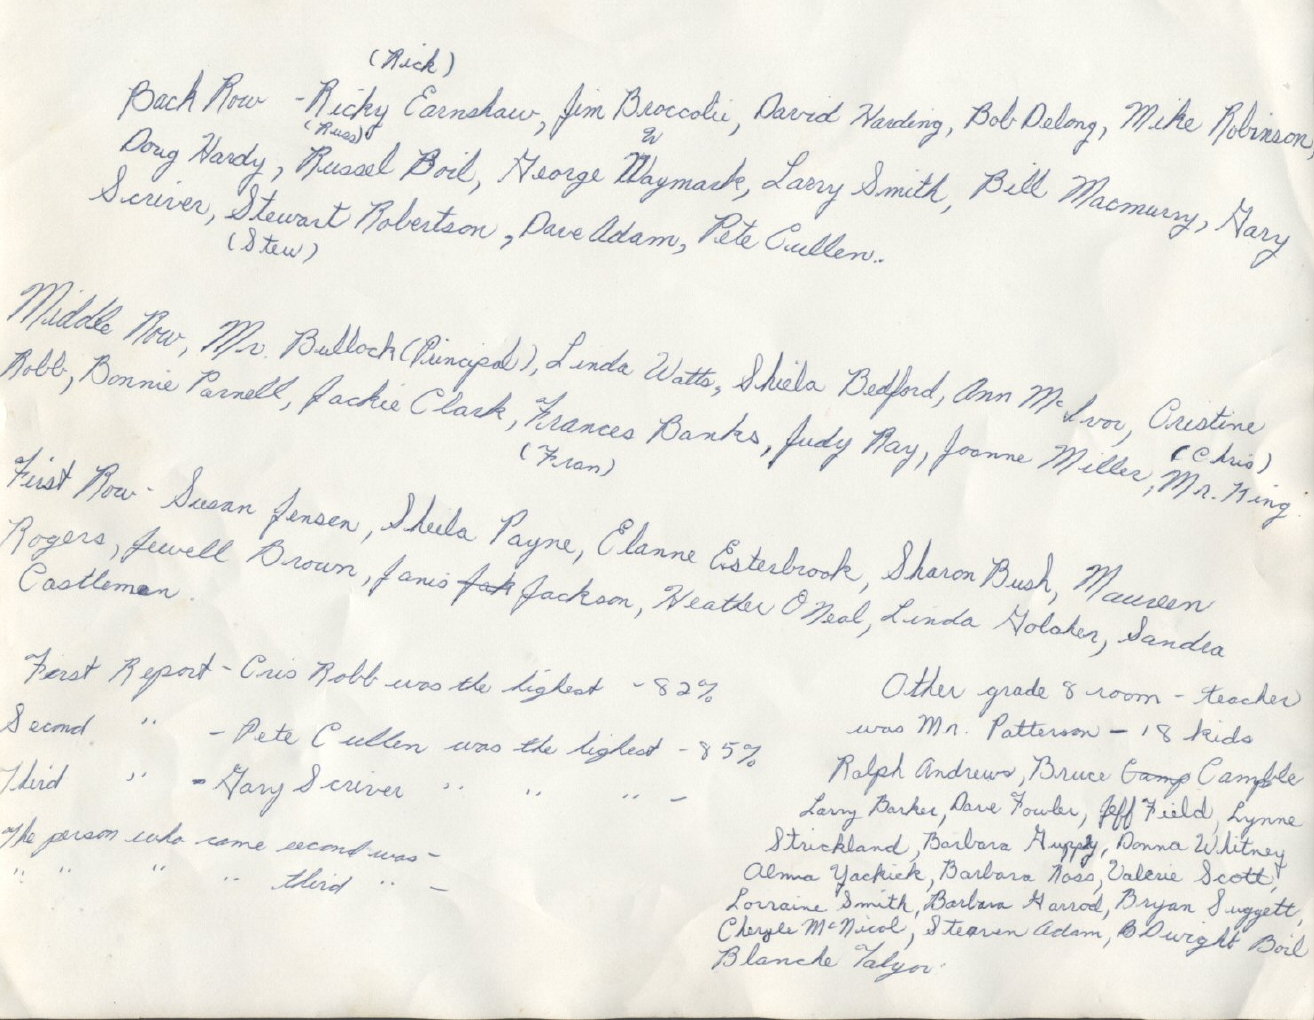 (Rick)
Back Row - Ricky Earnshaw, Jim Broccolie, David Harding, Bob Delong, Mike Robinson,
(Russ) W
Doug Hardy, Russel Boil, George Waymark, Larry Smith, Bill Macmurry, Gary
Scriver, Stewart Robertson, Dave Adam, Pete Cullen..
(Stew)
Middle Row, Mr. Bullock (Principal), Linda Watts, Shiela Bedford, Ann McIvor, Cristine
(Chris)
Robb, Bonnie Parnell, Jackie Clark, Frances Banks, Judy Ray, Joanne Miller, Mr. King.
(Fran)
First Row - Susan Jensen, Sheila Payne, Elanne Esterbrook, Sharon Bush, Maureen
Rogers, Jewell Brown, Janis Jackson, Heather O'Neal, Linda Golaher, Sandra
Castleman.
First Report - Cris Robb was the highest - 82%
Second " - Pete Cullen was the highest - 85%
Third " - Gary Scriver " " " -
The person who came second was -
" " " " third " -
Other grade 8 room - teacher
was Mr. Patterson - 18 kids
Ralph Andrews, Bruce Camp Camble
Larry Barker, Dave Fowler, Jeff Field, Lynne
Strickland, Barbara Guppy, Donna Whitney
Alma Yackick, Barbara Ross, Valerie Scott,
Lorraine Smith, Barbara Harrod, Bryan Suggett,
Cheryle McNicol, Steven Adam, B Dwight Boil
Blanche Talyor.